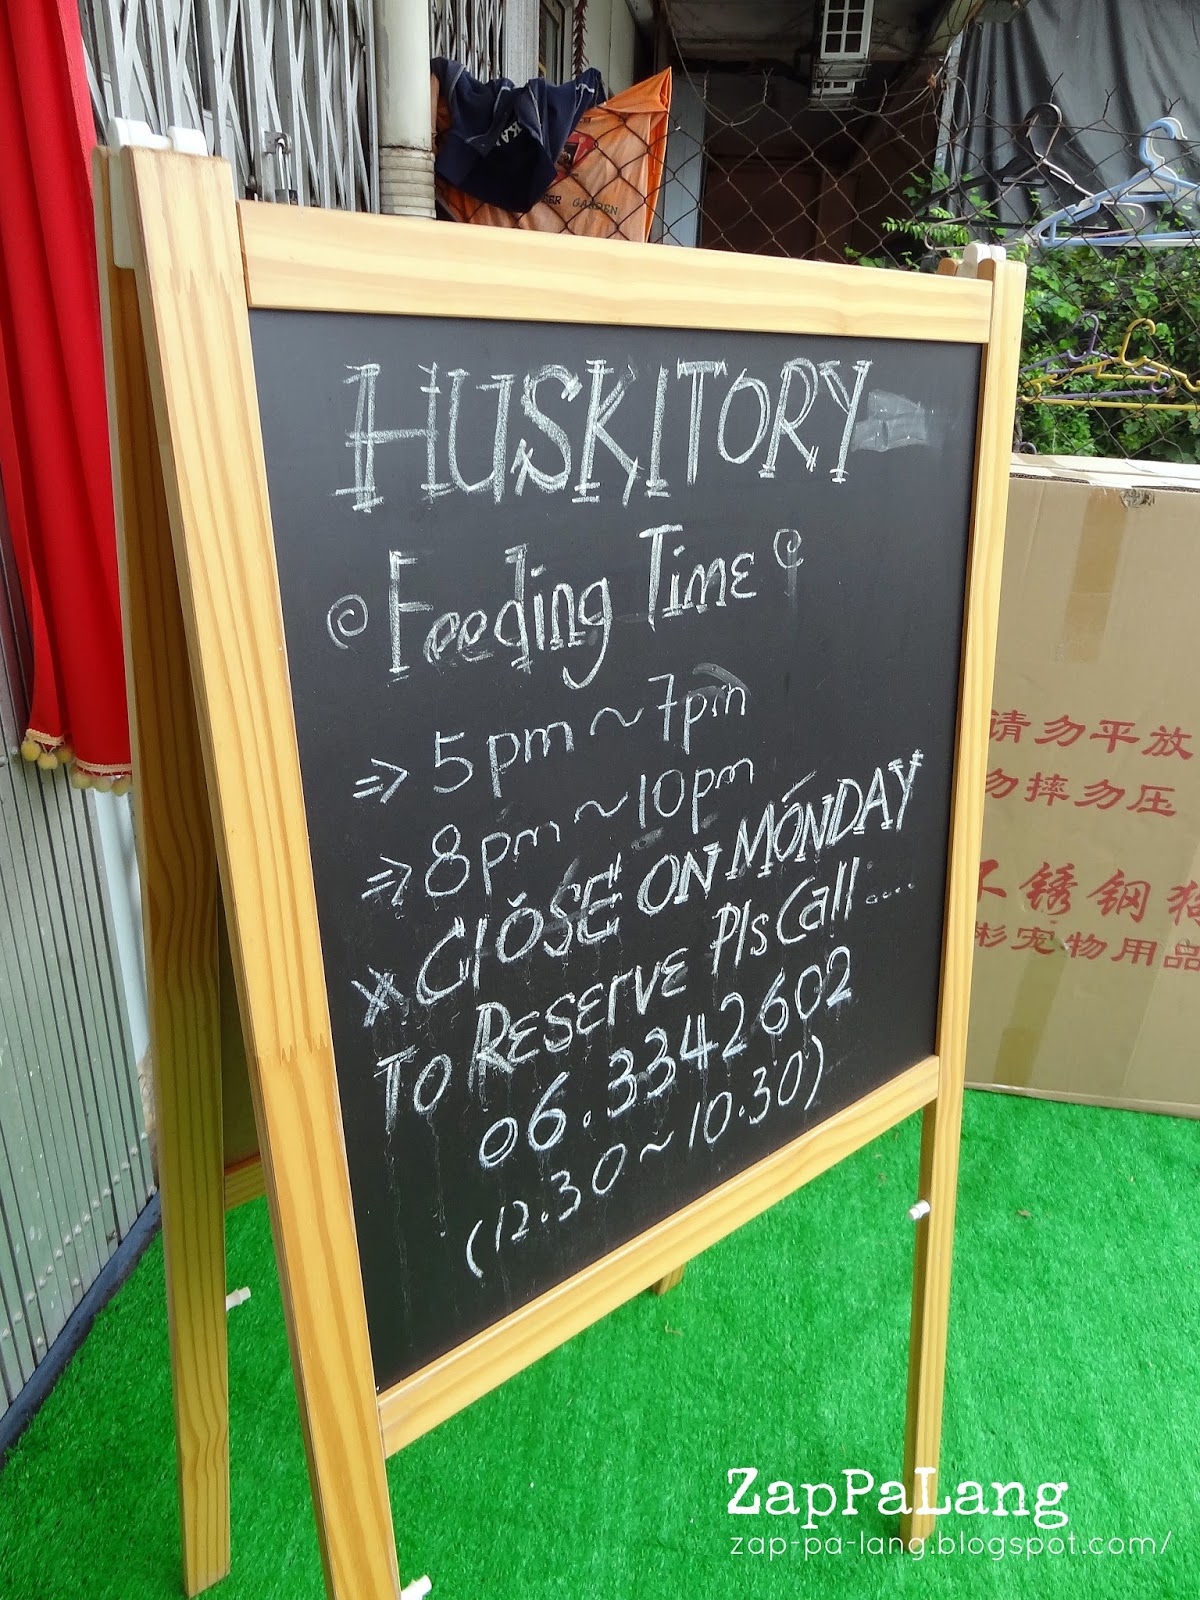 HUSKITORY
Feeding Time
⇒ 5pm ~ 7pm
⇒ 8pm ~ 10pm
* ClOSE ON MONDAY
TO RESErVE Pls Call....
06.3342602
(12.30 ~ 10.30)
GARDEN
请勿平放
勿摔勿压
不锈钢
彬宠物用品
ZapPaLang
zap-pa-lang.blogspot.com/